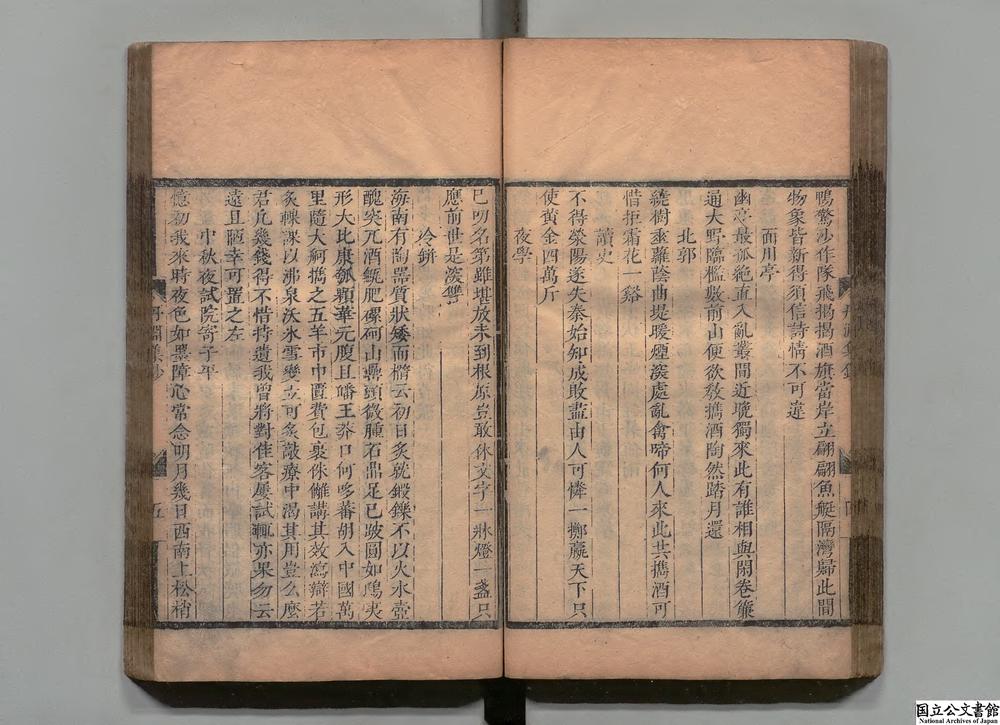 鴨驚沙作隊飛揚揚酒旗當岸立翩翩魚艇隔灣歸此間
物象皆新得須信詩情不可違
面川亭
幽亭最孤絶直入亂叢間近晚獨來此有誰相與閑卷簾
通大野臨檻數前山便欲教攜酒陶然踏月還
北郭
繞樹垂蘿蔭曲堤暖煙深處亂禽啼何人來此共攜酒可
惜拒霜花一谿
讀史
不得滎陽遂失秦始知成敗盡由人可憐一擲贏天下只
使黃金四萬斤
夜學
已叨名第雖堪放未到根原豈敢休文字一牀燈一盞只
應前世是深讐
冷缾
海南有陶器質狀矮而橢云初日炙就鍛鑠不以火水壺
醜突兀酒瓻肥磥砢山罍頭微腫石鼎足已跛圓如鴟夷
形大比康瓠顆華元腹且皤王莽口何哆蕃胡入中國萬
里隨大舸攜之五羊市巾匱費包裹侏𠌯講其效瀉辯若
炙輠課以沸泉沃氷雪變立可炙㪣療中渴其用豈么麼
君凡幾錢得不惜特遺我曾將對佳客屢試輒亦果勿云
遠且陋幸可置之左
中秋夜試院寄子平
憶初我來時夜色如黑障心常念明月幾日西南上松梢
丹淵集鈔
五
国立公文書館
National Archives of Japan